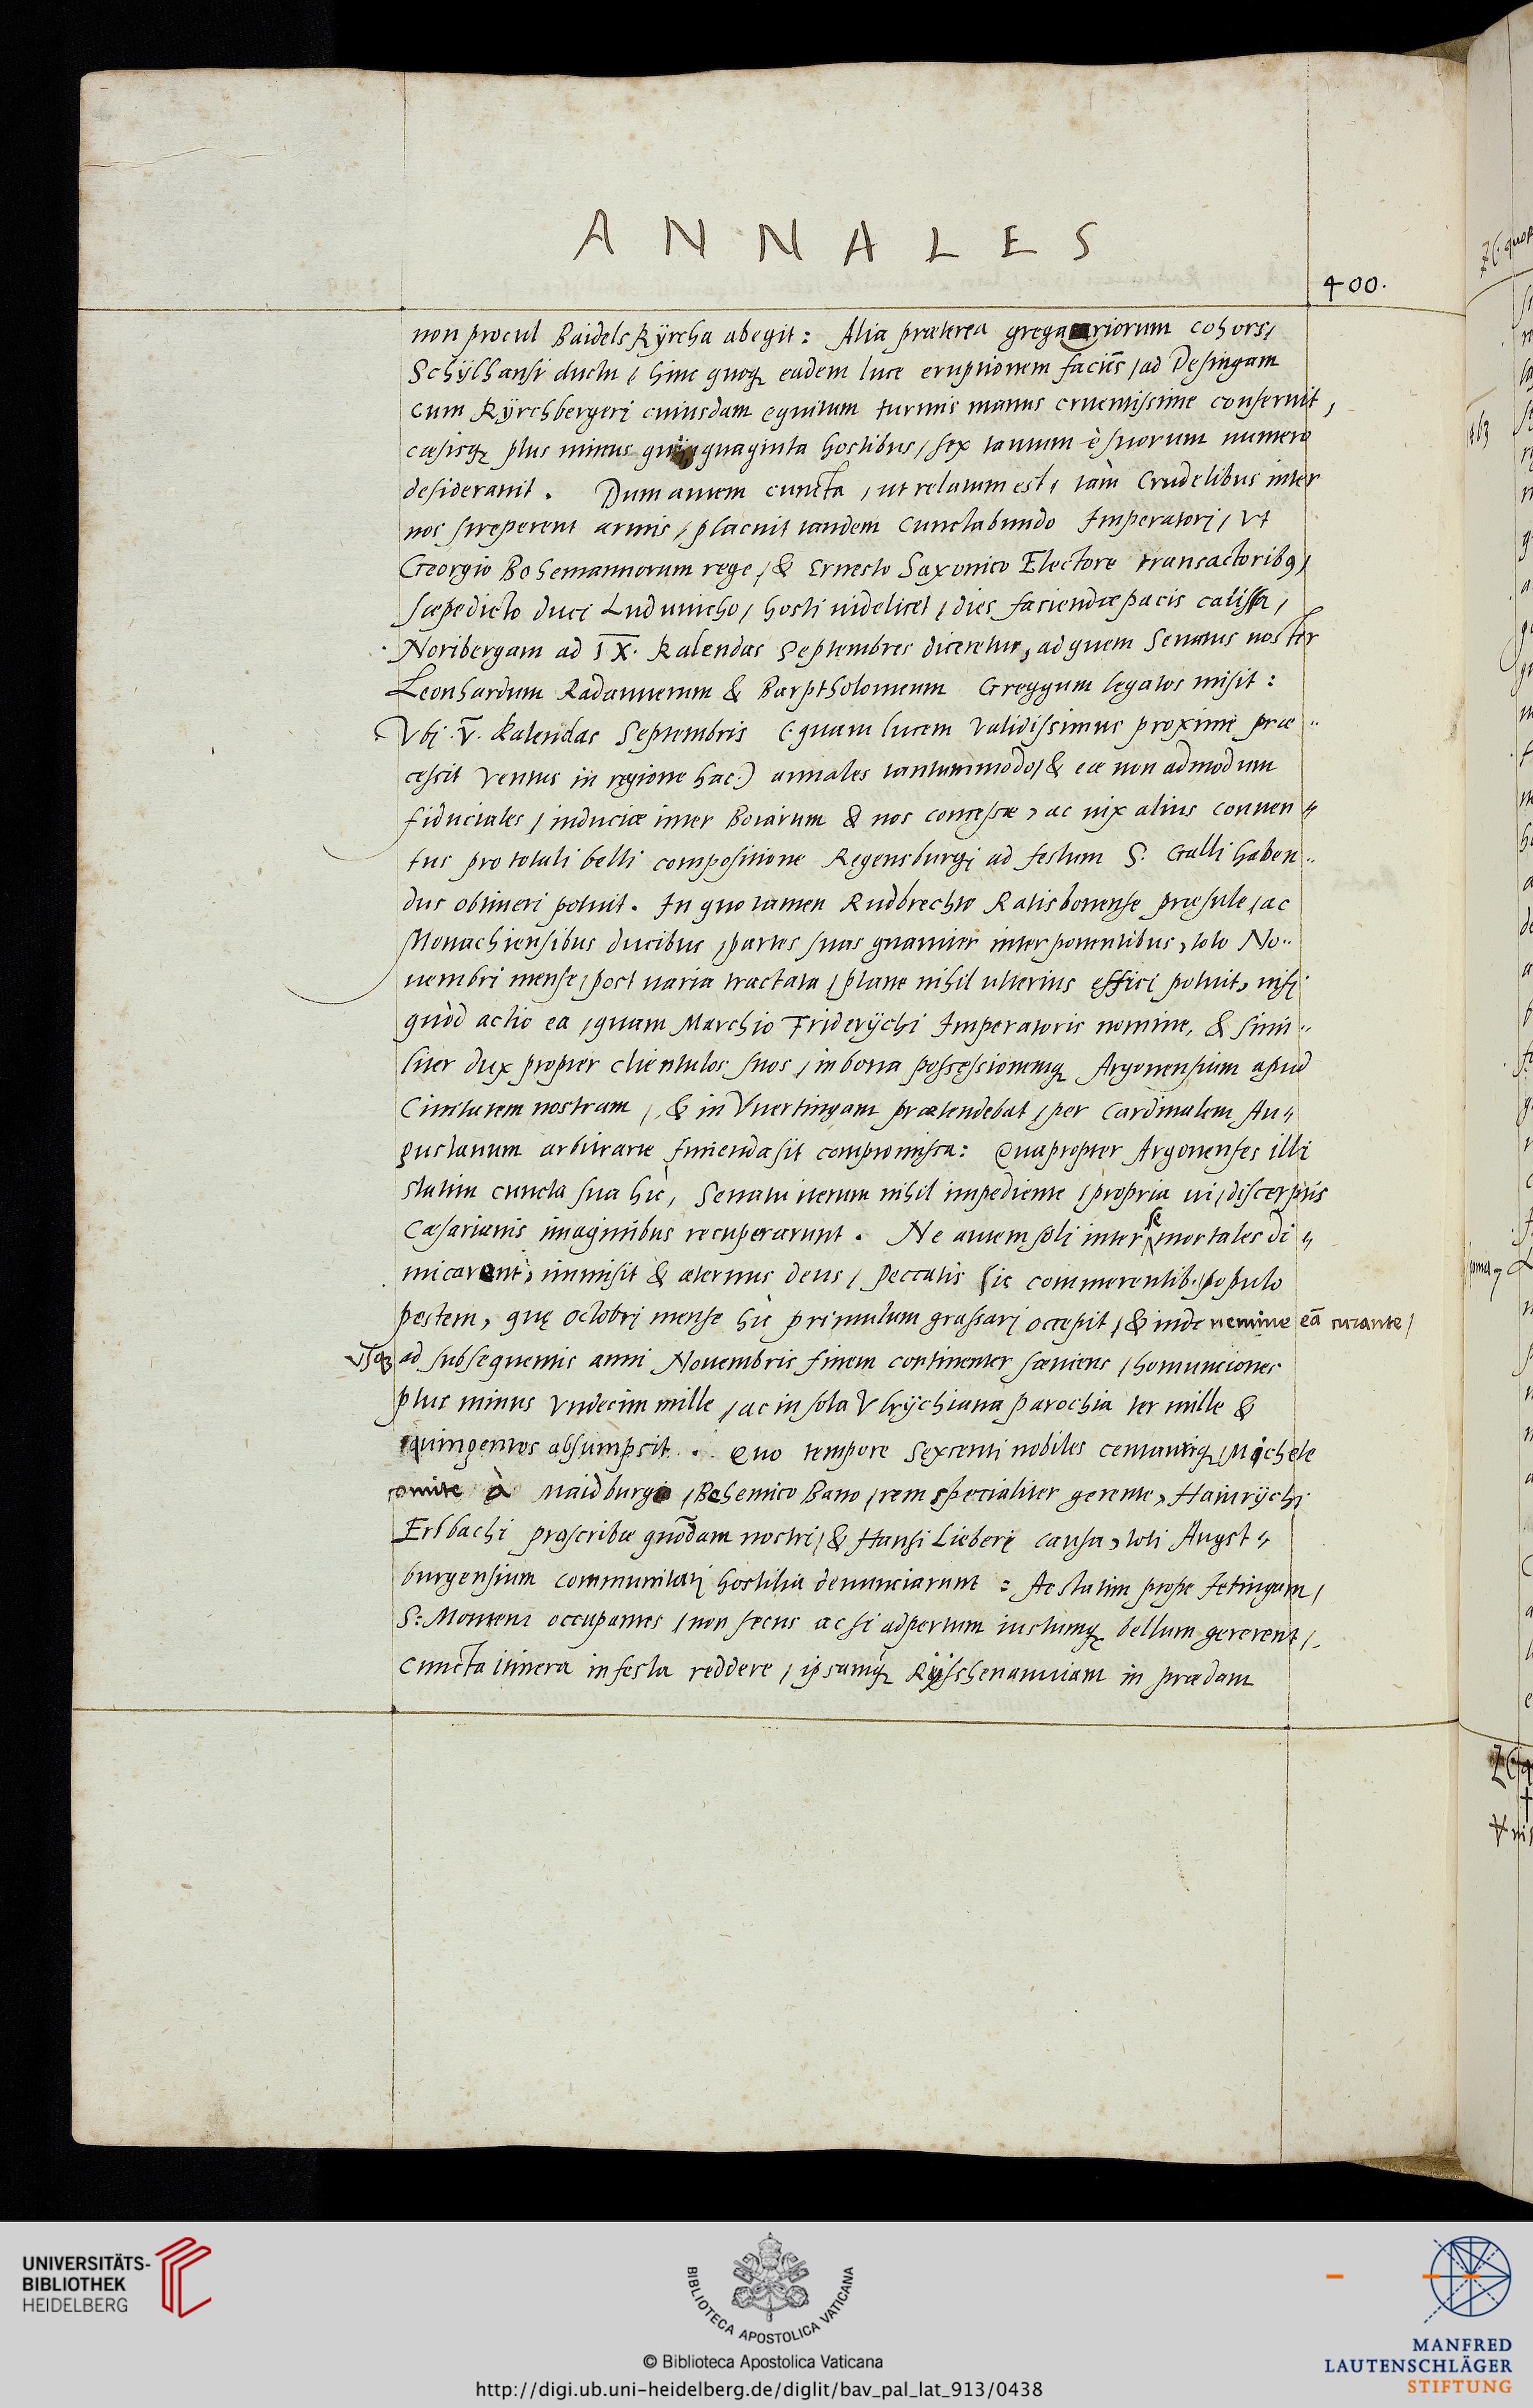 ANNALES
400.
non procul BaidelsKÿrcha abegit: Alia præterea gregariorum cohors,
Schÿlhansi ductu, hinc quoq; eadem luce eruptionem faciẽs, ad Desingam
cum Kÿrchbergeri cuiusdam equitum turmis manus cruentissime conseruit,
cæsisq; plus minus quinquaginta hostibus, sex tantum è suorum numero
desiderauit. Dum autem cuncta, ut relatum est, tàm Crudelibus inter
nos streperent armis, placuit tandem Cunctabundo Imperatori, Vt
Georgio Bohemannorum rege, & Ernesto Saxonico Electore transactorib9,
sæpedicto duci Luduuicho, hosti uidelicet, dies faciendæ pacis causa,
Noribergam ad IX. Kalendas Septembres diceretur, ad quem Senatus noster
Leonhardum Radauuerum & Barptholomeum Greggum legatos misit:
Vbi .V. Kalendas Septembris (quam lucem validissimus proxime præ„
cessit Ventus in regione hac.) annales tantummodo, & eæ non admodum
fiduciales, induciæ inter Boiarum & nos concessæ, ac uix alius conuen„
tus pro totali belli compositione Regensburgi ad festum S. Galli haben„
dus obtineri potuit. In quo tamen Rudbrechto Ratisbonense præsule, ac
Monachiensibus ducibus, partes suas gnauiter interponentibus, toto No„
uembri mense, post uaria tractata, plane nihil ulterius effici potuit, nisi
quòd actio ea, quam Marchio Friderÿchi Imperatoris nomine, & simi„
liter dux propter clientulos suos, in bona possessionemq; Argonensium apud
Ciuitatem nostram, & in Vuertingam prætendebat, per Cardinalem Au„
gustanum arbitrarie finienda sit compromissa: Quapropter Argonenses illi
statim cuncta sua hìc, Senatu iterum nihil impediente, propria ui, discerptis
Cæsarianis imaginibus recuperarunt. Ne autem soli inter se mortales di„
micarent, immisit & æternus deus, peccatis sic commerentib. populo
pestem, quę Octobri mense hìc primulum grassari occepit, & inde nemine eã curante,
vsq; ad subsequentis anni Nouembris finem continenter sæuiens, homunciones
plus minus Vndecim mille, ac in sola Vlrÿchiana parochia ter mille &
quingentos absumpsit. Quo tempore Sexcenti nobiles centauriq;, Michele
comite à Maidburgo, Bohemico Bano, rem specialiter gerente, Hainrÿchi
Erlbachi proscribæ quõdam nostri, & Hansi Lieberi causa, toti Augst„
burgensium communitati hostilia denunciarunt: Ac statim prope Tetingam,
S: Montem occupantes, non secus ac si adpertum iustumq; bellum gererent,
Cuncta itinera infesta reddere, ipsamq; Rÿschenauuiam in prædam
UNIVERSITÄTS-
BIBLIOTHEK
HEIDELBERG
BIBLIOTECA APOSTOLICA VATICANA
© Biblioteca Apostolica Vaticana
http://digi.ub.uni-heidelberg.de/diglit/bav_pal_lat_913/0438
MANFRED
LAUTENSCHLÄGER
STIFTUNG